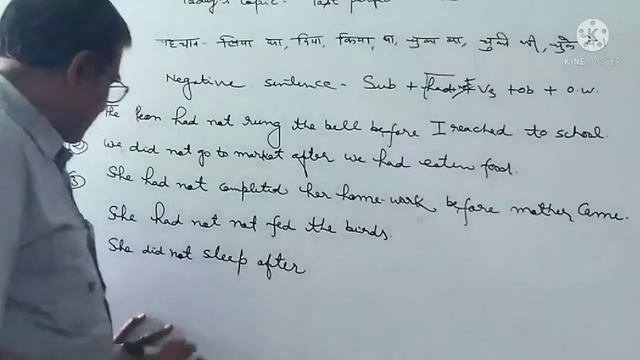 Today's topic - Past perfe
पहचान - लिया था, दिया, किया था, चुका था, चुकी थी, चुके थे
Negative sentence - Sub + had not V3 + ob + o.w.
The Peon had not rung the bell before I reached to school.
② We did not go to market after we had eaten food.
③ She had not completed her home-work before mother came.
She had not not fed the birds.
She did not sleep after
K
KINEMASTER